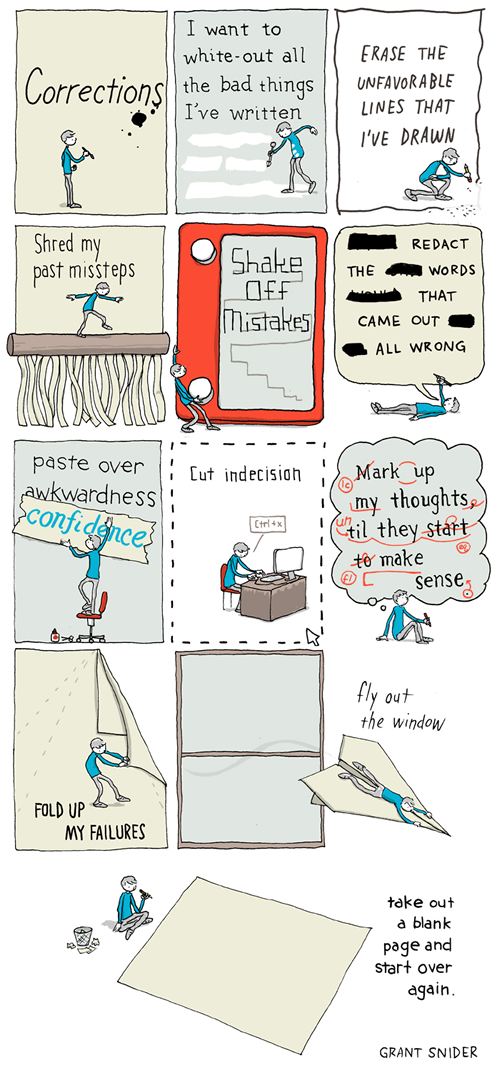 Corrections
I want to
white-out all
the bad things
I've written
ERASE THE
UNFAVORABLE
LINES THAT
I'VE DRAWN
Shred my
past missteps
Shake
Off
Mistakes
REDACT
THE WORDS
THAT
CAME OUT
ALL WRONG
paste over
awkwardness
confidence
Cut indecision
Ctrl+x
Mark up
lc
my thoughts,
un
til they start
to make
fl
sense.
fly out
the window
FOLD UP
MY FAILURES
take out
a blank
page and
start over
again.
GRANT SNIDER